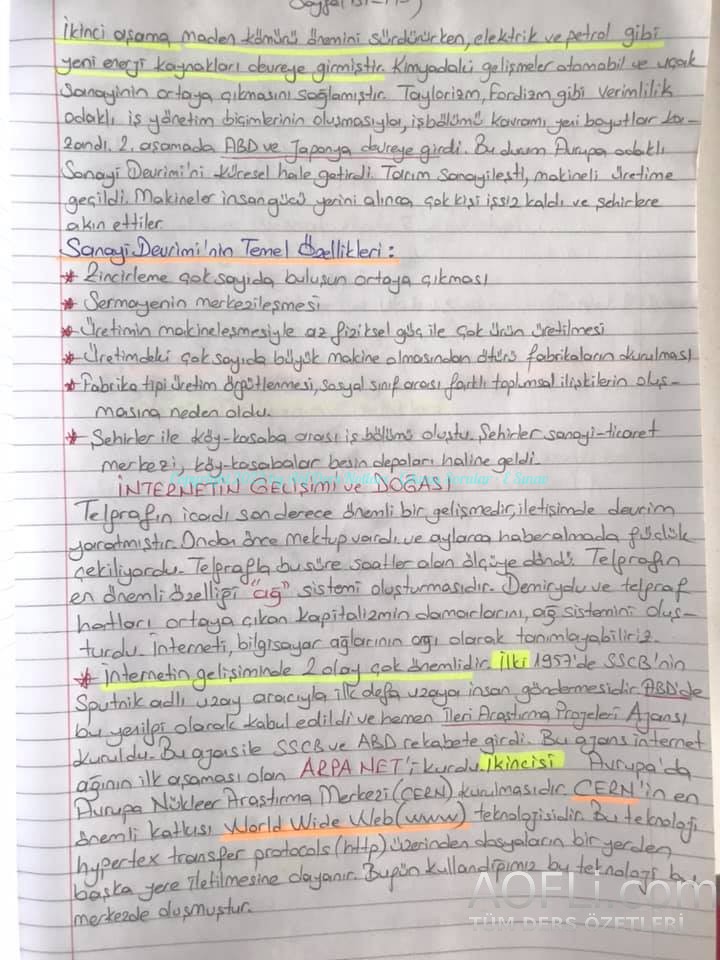 İkinci aşama, maden kömürü önemini sürdürürken, elektrik ve petrol gibi
yeni enerji kaynakları devreye girmiştir. Kimyadaki gelişmeler otomobil ve uçak
Sanayinin ortaya çıkmasını sağlamıştır. Taylorizm, Fordizm gibi verimlilik
odaklı iş yönetim biçimlerinin oluşmasıyla, işbölümü kavramı yeni boyutlar ka-
zandı. 2. aşamada ABD ve Japonya devreye girdi. Bu durum Avrupa odaklı
Sanayi Devrimi'ni küresel hale getirdi. Tarım Sanayileşti, makineli üretime
geçildi. Makineler insan gücü yerini alınca çok kişi işsiz kaldı ve şehirlere
akın ettiler.
Sanayi Devrimi'nin Temel Özellikleri:
* Zincirleme çok sayıda buluşun ortaya çıkması
* Sermayenin merkezileşmesi
* Üretimin makineleşmesiyle az fiziksel güç ile çok ürün üretilmesi
* Üretimdeki çok sayıda büyük makine olmasından ötürü fabrikaların kurulması
* Fabrika tipi üretim örgütlenmesi, sosyal sınıf arası farklı toplumsal ilişkilerin oluş-
masına neden oldu.
* Şehirler ile köy-kasaba arası iş bölümü oluştu. Şehirler sanayi-ticaret
merkezi, köy-kasabalar besin depoları haline geldi.
İNTERNETİN GELİŞİMİ ve DOĞASI
Telgrafın icadı son derece önemli bir gelişmedir, iletişimde devrim
yaratmıştır. Ondan önce mektup vardı ve aylarca haber almada güçlük
çekiliyordu. Telgrafla bu süre saatler alan ölçüye döndü. Telgrafın
en önemli özelliği "ağ" sistemi oluşturmasıdır. Demiryolu ve telgraf
hatları ortaya çıkan kapitalizmin damarlarını, ağ sistemini oluş-
turdu. İnterneti, bilgisayar ağlarının ağı olarak tanımlayabiliriz.
* İnternetin gelişiminde 2 olay çok önemlidir. İlki 1957'de SSCB'nin
Sputnik adlı uzay aracıyla ilk defa uzaya insan göndermesidir. ABD'de
bu yenilgi olarak kabul edildi ve hemen İleri Araştırma Projeleri Ajansı
kuruldu. Bu ajans ile SSCB ve ABD rekabete girdi. Bu ajans internet
ağının ilk aşaması olan ARPANET'i kurdu. İkincisi Avrupa'da
Avrupa Nükleer Araştırma Merkezi (CERN) kurulmasıdır. CERN'in en
önemli katkısı World Wide Web (www) teknolojisidir. Bu teknoloji
hypertex transfer protocols (http) üzerinden dosyaların bir yerden
başka yere iletilmesine dayanır. Bugün kullandığımız bu teknoloji bu
merkezde oluşmuştur.
AÖFLi.com
TÜM DERS ÖZETLERİ